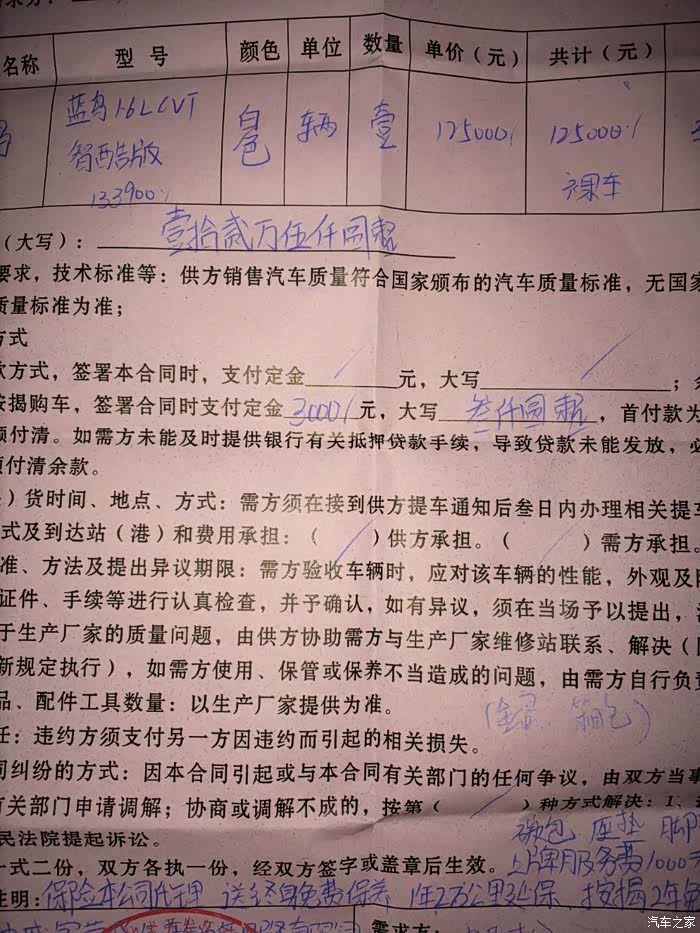 名称 型号 颜色 单位 数量 单价（元） 共计（元）
蓝鸟1.6LCVT 白色 辆 壹 125000 125000
智酷版 裸车
133900
（大写）：壹拾贰万伍仟圆整
要求，技术标准等：供方销售汽车质量符合国家颁布的汽车质量标准，无国家
质量标准为准；
方式
款方式，签署本合同时，支付定金 元，大写 ；
按揭购车，签署合同时支付定金3000元，大写叁仟圆整，首付款为
须付清。如需方未能及时提供银行有关抵押贷款手续，导致贷款未能发放，必
须付清余款。
）货时间、地点、方式：需方须在接到供方提车通知后叁日内办理相关提车
式及到达站（港）和费用承担：（ ）供方承担。（ ）需方承担。
准、方法及提出异议期限：需方验收车辆时，应对该车辆的性能，外观及
证件、手续等进行认真检查，并予确认，如有异议，须在当场予以提出，
于生产厂家的质量问题，由供方协助需方与生产厂家维修站联系、解决（
新规定执行），如需方使用、保管或保养不当造成的问题，由需方自行负责
品、配件工具数量：以生产厂家提供为准。
任：违约方须支付另一方因违约而引起的相关损失。
同纠纷的方式：因本合同引起或与本合同有关部门的任何争议，由双方当事
有关部门申请调解；协商或调解不成的，按第（ ）种方式解决：1、
民法院提起诉讼。
座垫 脚
一式二份，双方各执一份，经双方签字或盖章后生效。上牌服务费1000
注明：保险本公司代理 送终身免费保养 1年2万公里延保 按揭2年
需求方：
汽车之家